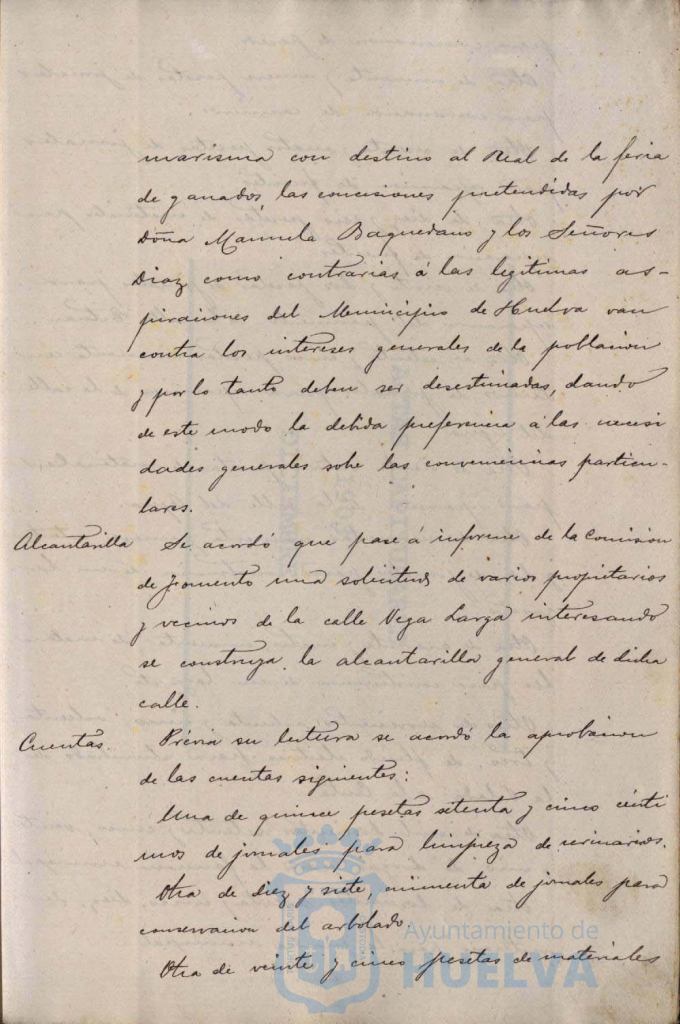 marisma con destino al Real de la feria
de ganados, las concisiones pretendidas por
Doña Manuela Baquedano y los Señores
Diaz como contrarias á las legitimas as-
piraciones del Municipio de Huelva van
contra los intereses generales de la poblacion
y por lo tanto deben ser desestimadas, dando
de este modo la debida preferencia á las necesi
dades generales sobre las conveniencias particu-
lares.
Alcantarilla Se acordó que pase á informe de la Comision
de Fomento una solicitud de varios propietarios
y vecinos de la calle Vega Larga interesando
se construya la alcantarilla general de dicha
calle.
Cuentas. Prévia su lectura se acordó la aprobacion
de las cuentas siguientes:
Una de quince pesetas setenta y cinco cénti
mos de jornales para limpieza de urinarios.
Otra de diez y siete, cincuenta de jornales para
conservacion del arbolado.
Otra de veinte y cinco pesetas de materiales
Ayuntamiento de
HUELVA